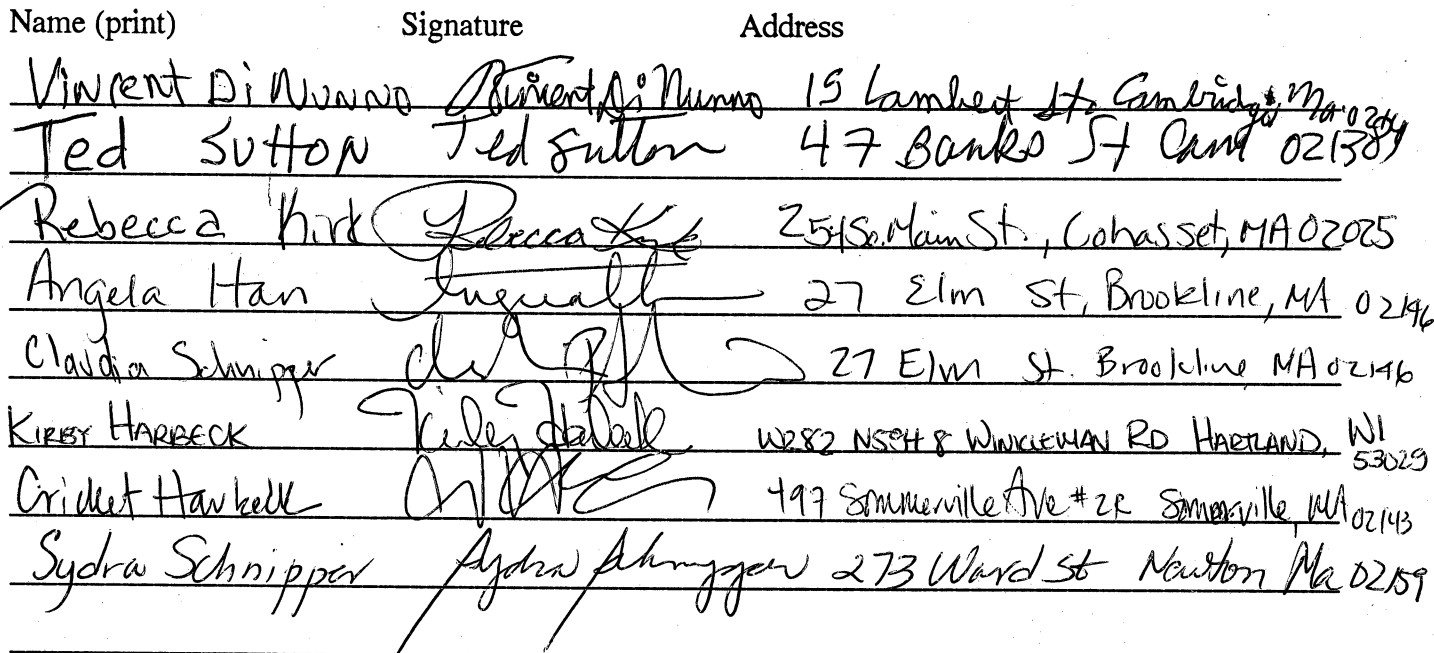 Name (print) Signature Address
Vincent Di Nunno Vincent Di Nunno 15 Lambert St. Cambridge, Ma.
Ted Sutton Ted Sutton 47 Banks St Cam
Rebecca Kirk Rebecca Kirk 254 So. Main St., Cohasset, MA 02025
Angela Han 27 Elm St, Brookline, MA 02146
Claudia Schnipper 27 Elm St. Brookline MA 02146
KIRBY HARBECK Kirby Harbeck WINKLEMAN RD HARTLAND, WI 53029
Cricket 497 Sommerville Ave #2R Somerville, MA 02143
Sydra Schnipper Sydra Schnipper 273 Ward St Newton Ma 02159